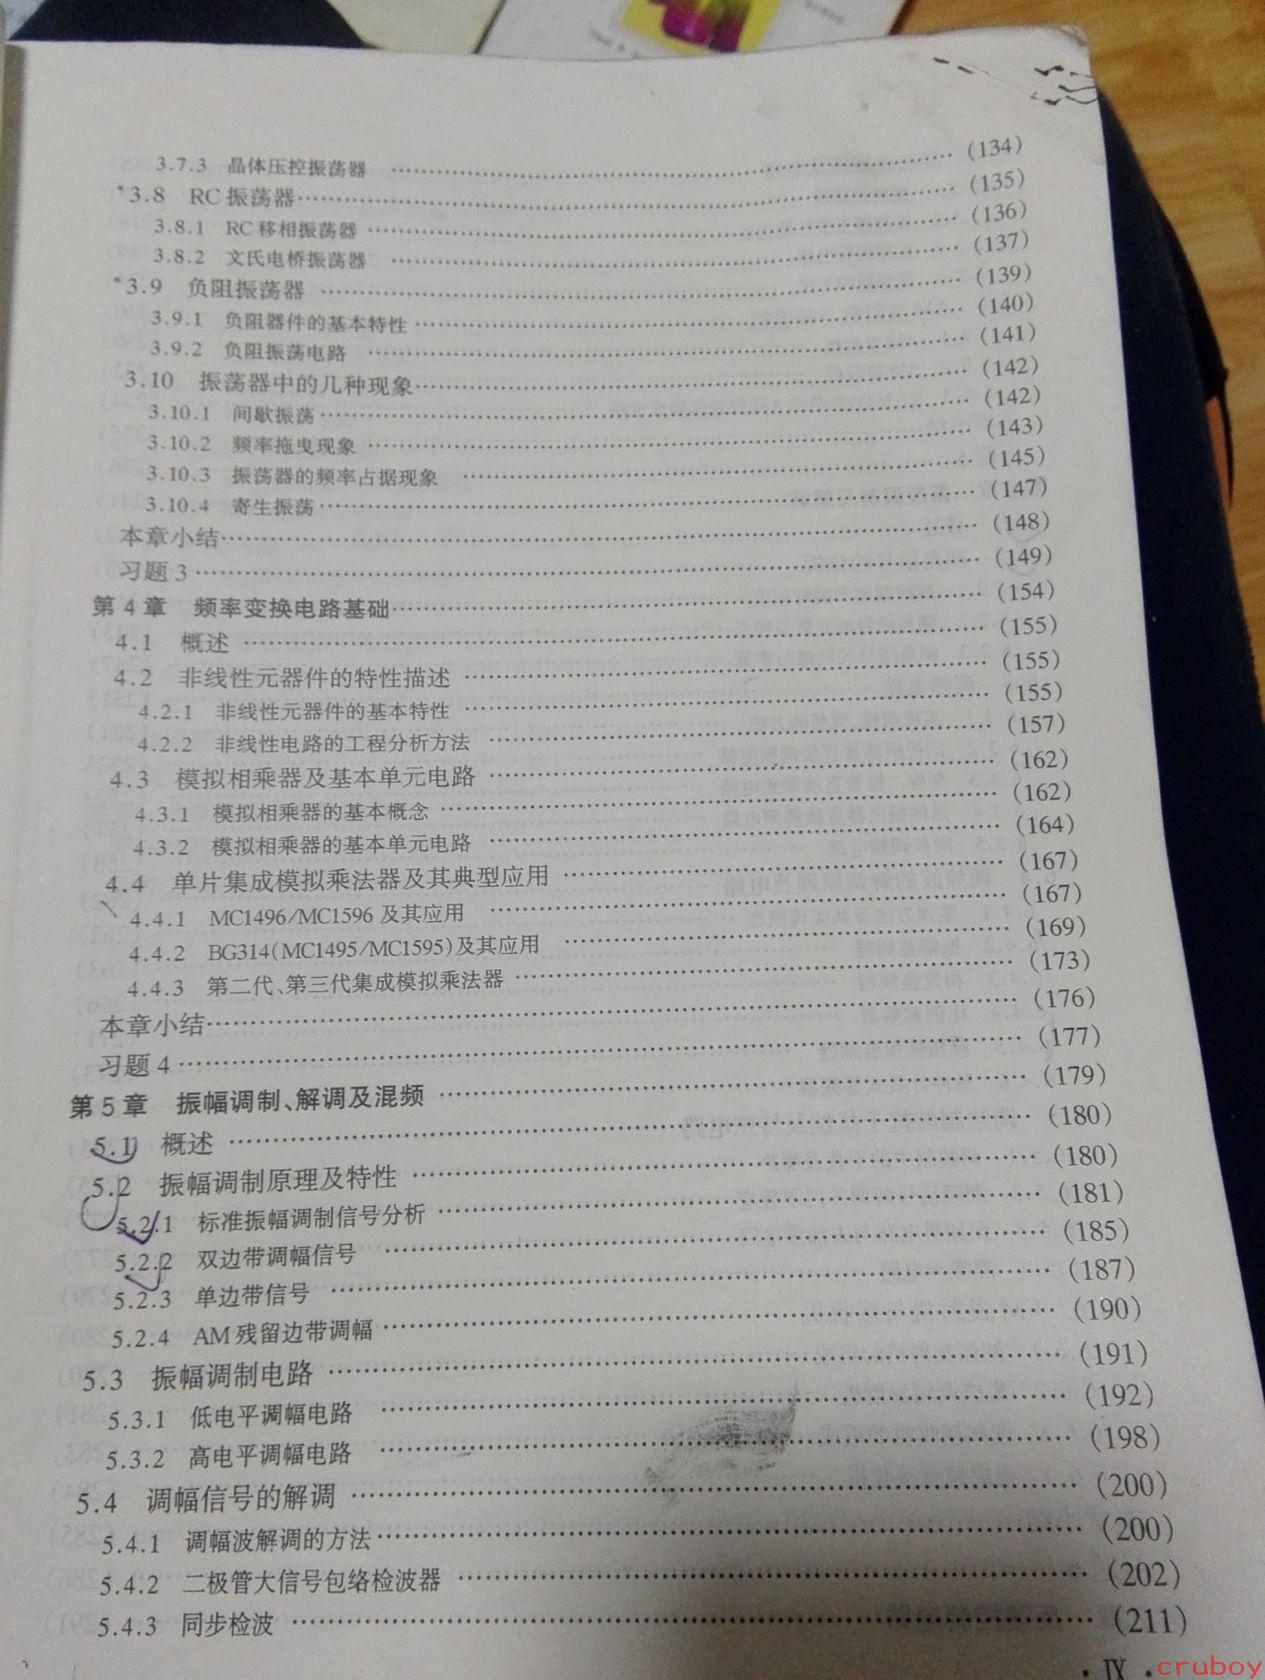 3.7.3 晶体压控振荡器 ……………………………… (134)
*3.8 RC 振荡器……………………………… (135)
3.8.1 RC 移相振荡器 ……………………………… (136)
3.8.2 文氏电桥振荡器 ……………………………… (137)
*3.9 负阻振荡器 ……………………………… (139)
3.9.1 负阻器件的基本特性 ……………………………… (140)
3.9.2 负阻振荡电路 ……………………………… (141)
3.10 振荡器中的几种现象……………………………… (142)
3.10.1 间歇振荡 ……………………………… (142)
3.10.2 频率拖曳现象 ……………………………… (143)
3.10.3 振荡器的频率占据现象 ……………………………… (145)
3.10.4 寄生振荡 ……………………………… (147)
本章小结……………………………… (148)
习题 3 ……………………………… (149)
第 4 章 频率变换电路基础……………………………… (154)
4.1 概述 ……………………………… (155)
4.2 非线性元器件的特性描述 ……………………………… (155)
4.2.1 非线性元器件的基本特性 ……………………………… (155)
4.2.2 非线性电路的工程分析方法 ……………………………… (157)
4.3 模拟相乘器及基本单元电路 ……………………………… (162)
4.3.1 模拟相乘器的基本概念 ……………………………… (162)
4.3.2 模拟相乘器的基本单元电路 ……………………………… (164)
4.4 单片集成模拟乘法器及其典型应用 ……………………………… (167)
4.4.1 MC1496/MC1596 及其应用 ……………………………… (167)
4.4.2 BG314(MC1495/MC1595)及其应用 ……………………………… (169)
4.4.3 第二代、第三代集成模拟乘法器 ……………………………… (173)
本章小结……………………………… (176)
习题 4 ……………………………… (177)
第 5 章 振幅调制、解调及混频 ……………………………… (179)
5.1 概述 ……………………………… (180)
5.2 振幅调制原理及特性 ……………………………… (180)
5.2.1 标准振幅调制信号分析 ……………………………… (181)
5.2.2 双边带调幅信号 ……………………………… (185)
5.2.3 单边带信号 ……………………………… (187)
5.2.4 AM 残留边带调幅 ……………………………… (190)
5.3 振幅调制电路 ……………………………… (191)
5.3.1 低电平调幅电路 ……………………………… (192)
5.3.2 高电平调幅电路 ……………………………… (198)
5.4 调幅信号的解调 ……………………………… (200)
5.4.1 调幅波解调的方法……………………………… (200)
5.4.2 二极管大信号包络检波器 ……………………………… (202)
5.4.3 同步检波 ……………………………… (211)
· IX ·
cruboy